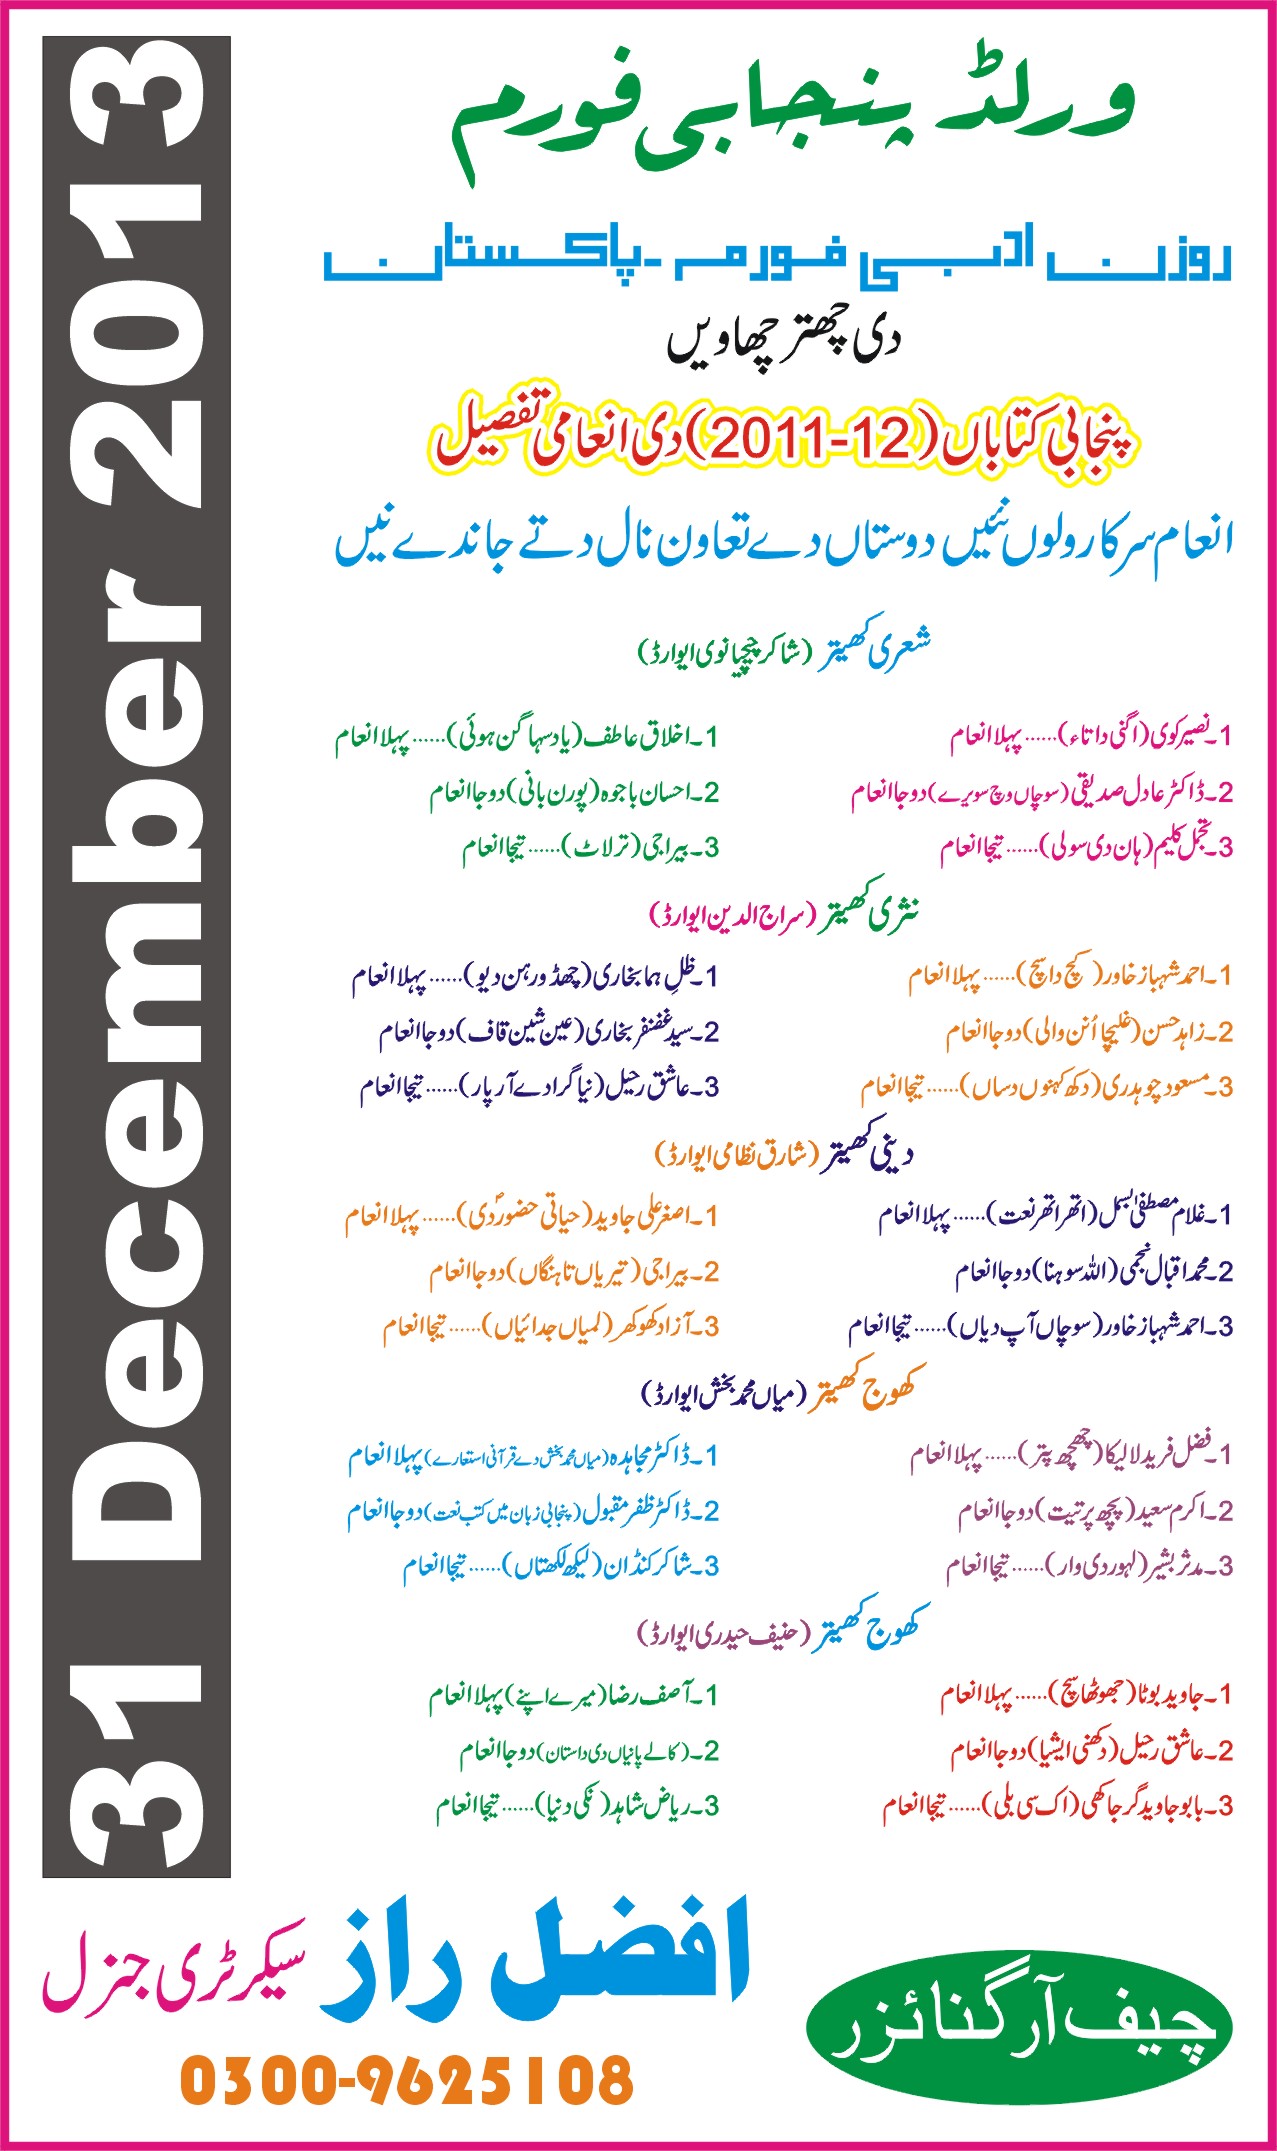 31 December 2013
ورلڈ پنجابی فورم
روزن ادبی فورم ۔پاکستان
دی چھتر چھاویں
پنجابی کتاباں (2011-12) دی انعامی تفصیل
انعام سرکار ولوں نئیں دوستاں دے تعاون نال دتے جاندے نیں
شعری کھیتر (شاکر چیچیانوی ایوارڈ)
1۔نصیر کوی (اگنی داتاء)...... پہلا انعام
2۔ڈاکٹر عادل صدیقی (سوچاں وچ سویرے) دوجا انعام
3۔تجمل کلیم (ہان دی سولی)...... تیجا انعام
1۔اخلاق عاطف (یاد سہاگن ہوئی)...... پہلا انعام
2۔احسان باجوہ (پورن بانی) دوجا انعام
3۔بیراجی (ترلاٹ)...... تیجا انعام
نثری کھیتر (سراج الدین ایوارڈ)
1۔احمد شہباز خاور (کچ دا سچ)...... پہلا انعام
2۔زاہد حسن (غلیچا اُنن والی) دوجا انعام
3۔مسعود چوہدری (دکھ کہنوں دساں)...... تیجا انعام
1۔ظلِ ہما بخاری (چھڈو رہن دیو)...... پہلا انعام
2۔سید غضنفر بخاری (عین شین قاف) دوجا انعام
3۔عاشق رحیل (نیاگرا دے آر پار)...... تیجا انعام
دینی کھیتر (شارق نظامی ایوارڈ)
1۔غلام مصطفیٰ بسمل (اتھر اتھر نعت)...... پہلا انعام
2۔محمد اقبال نجمی (اللہ سوہنا) دوجا انعام
3۔احمد شہباز خاور (سوچاں آپ دیاں)...... تیجا انعام
1۔اصغر علی جاوید (حیاتی حضورؐ دی)...... پہلا انعام
2۔بیراجی (تیریاں تاہنگاں) دوجا انعام
3۔آزاد کھوکھر (لمیاں جدائیاں)...... تیجا انعام
کھوج کھیتر (میاں محمد بخش ایوارڈ)
1۔فضل فرید لالیکا (چھچھ پتر)...... پہلا انعام
2۔اکرم سعید (پچھ پرتیت) دوجا انعام
3۔مدثر بشیر (لہور دی وار)...... تیجا انعام
1۔ڈاکٹر مجاہدہ (میاں محمد بخش دے قرآنی استعارے) پہلا انعام
2۔ڈاکٹر ظفر مقبول (پنجابی زبان میں کتب نعت) دوجا انعام
3۔شاکر کنڈان (لیکھ لکھتاں)...... تیجا انعام
کھوج کھیتر (حنیف حیدری ایوارڈ)
1۔جاوید بوٹا (جھوٹھا سچ)...... پہلا انعام
2۔عاشق رحیل (دکھنی ایشیا) دوجا انعام
3۔بابو جاوید گرجاکھی (اک سی بلی)...... تیجا انعام
1۔آصف رضا (میرے اپنے) پہلا انعام
2۔(کالے پانیاں دی داستان) دوجا انعام
3۔ریاض شاہد (نکی دنیا)...... تیجا انعام
چیف آرگنائزر
افضل راز سیکرٹری جنرل
0300-9625108